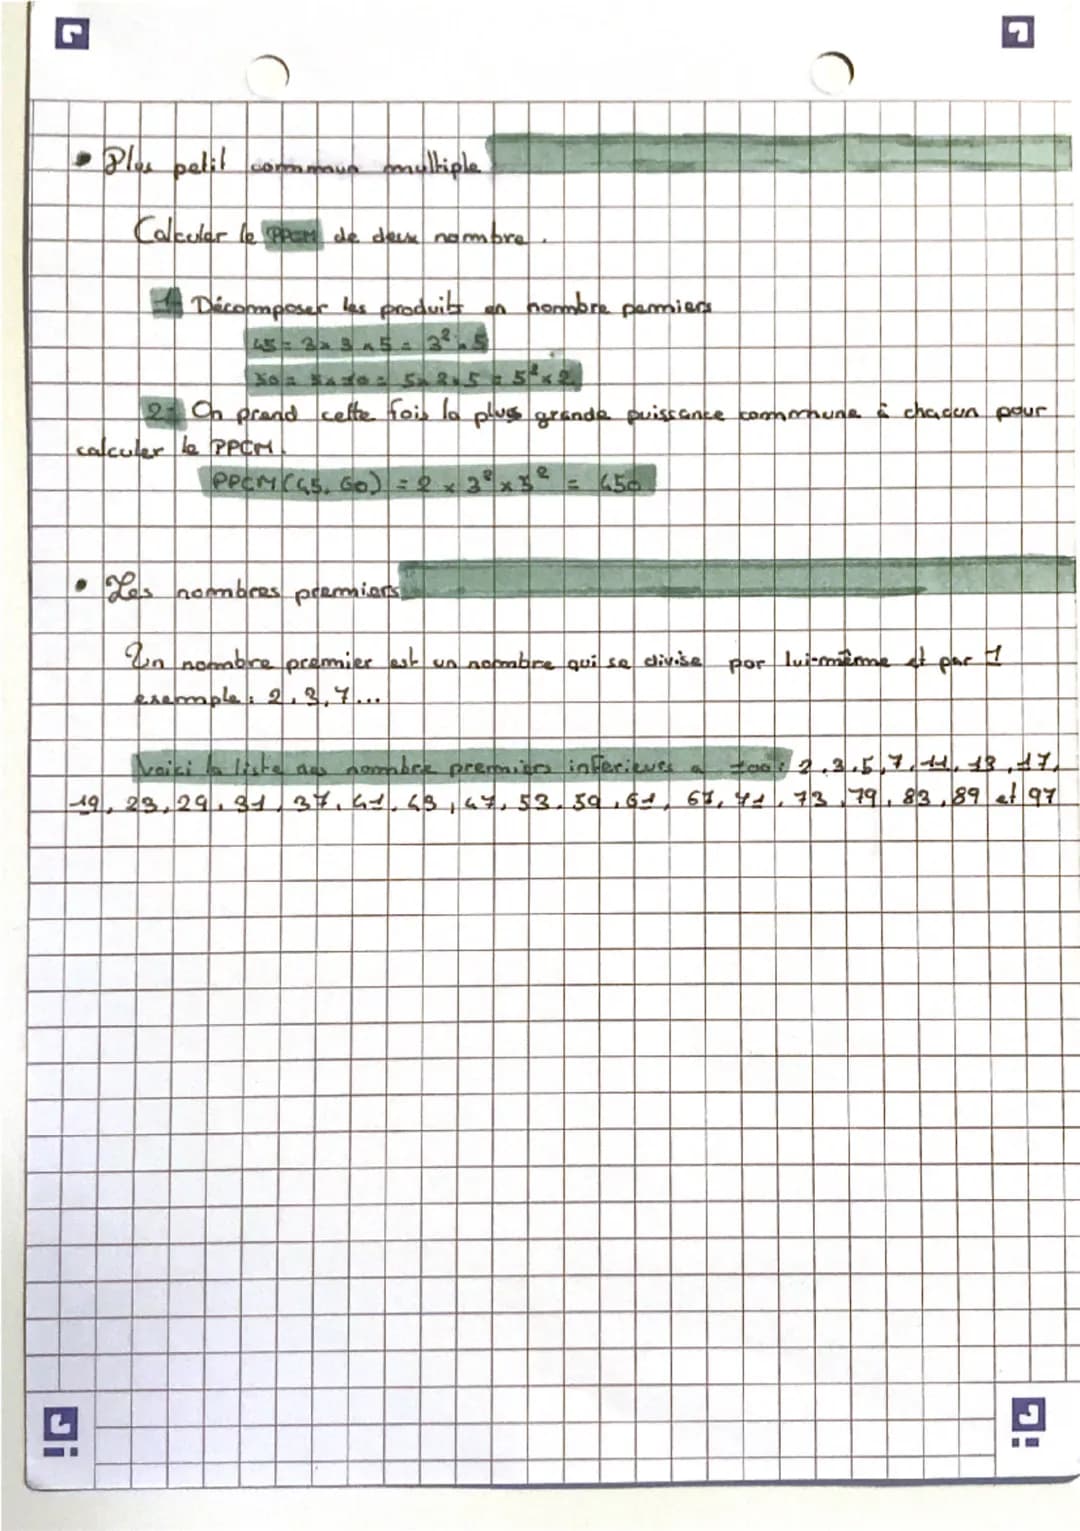 • Plus petit commun multiple
Calculer le PPCM de deux nombre.
1- Décomposer les produits en nombre permiers
45 = 3 x 3 x 5 = 3² x 5
50 = 5 x 10 = 5 x 2 x 5 = 5² x 2
2- On prend cette fois la plus grande puissance commmune à chacun pour
calculer le PPCM.
PPCM (45, 60) = 2 x 3² x 5² = 450
• Les nombres premiers
Un nombre premier est un nombre qui se divise par lui-même et par 1
exemple : 2, 3, 7...
Voici la liste des nombre premiers inferieurs a 100 : 2, 3, 5, 7, 11, 13, 17,
19, 23, 29, 31, 37, 41, 43, 47, 53, 59, 61, 67, 71, 73, 79, 83, 89 et 97